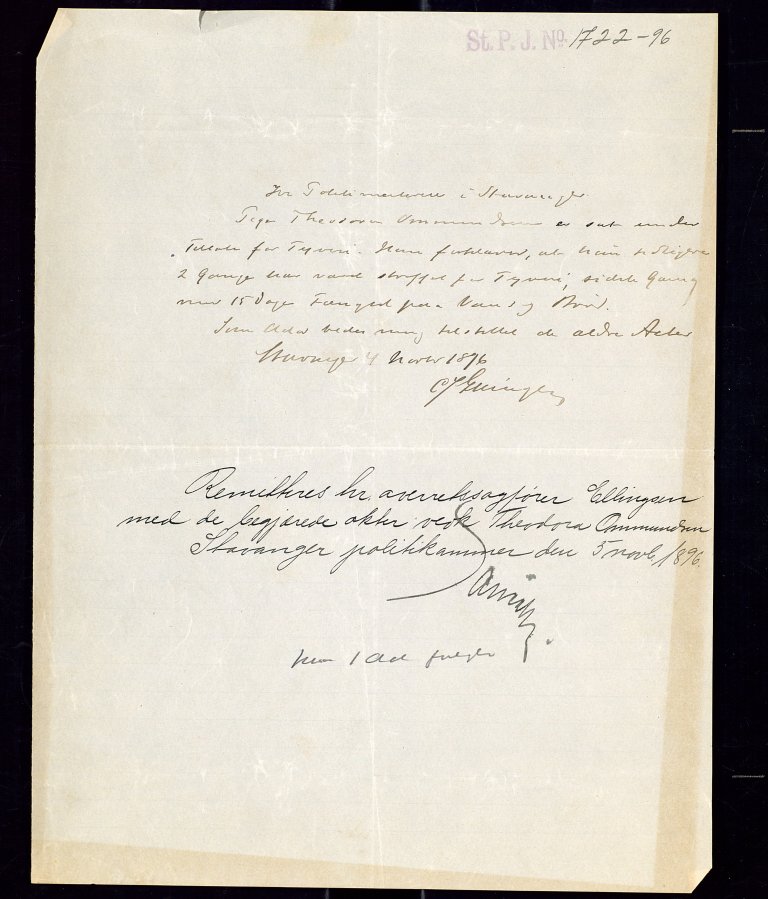 St. P. J. No. 1722-96
Hr Politimesteren i Stavanger
Pige Theodora Ommundsen er sat under
Tiltale for Tyveri. Hun forklarer, at hun tidligere
2 Gange har været straffet for Tyveri, sidste Gang
med 15 Dages Fængsel paa Vand og Brød.
Som bedes mig tilstillet de ældre Acter
Stavanger 4 Novbr 1896
Remitteres hr. overretssagfører Ellingsen
med de begjærede akter vedk Theodora Ommundsen
Stavanger politikammer den 5 novb. 1896.
kun 1 følger